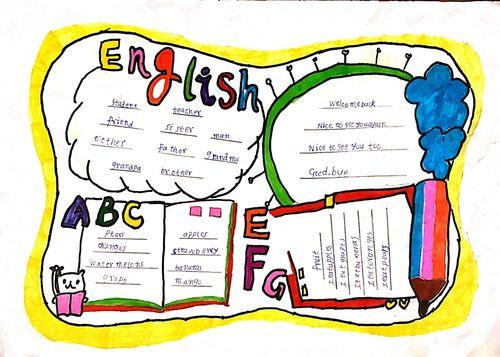 English
student teacher
friend sister man
mother father grandma
grandpa brother
Welcome back
Nice to see you again
Nice to see you too
ABC
Pear
oranges
watermelons
grape
apples
strawberry
bananas
mango
EFG
fruit
I eat apples
I eat grapes
I eat bananas
I eat oranges
I eat pears